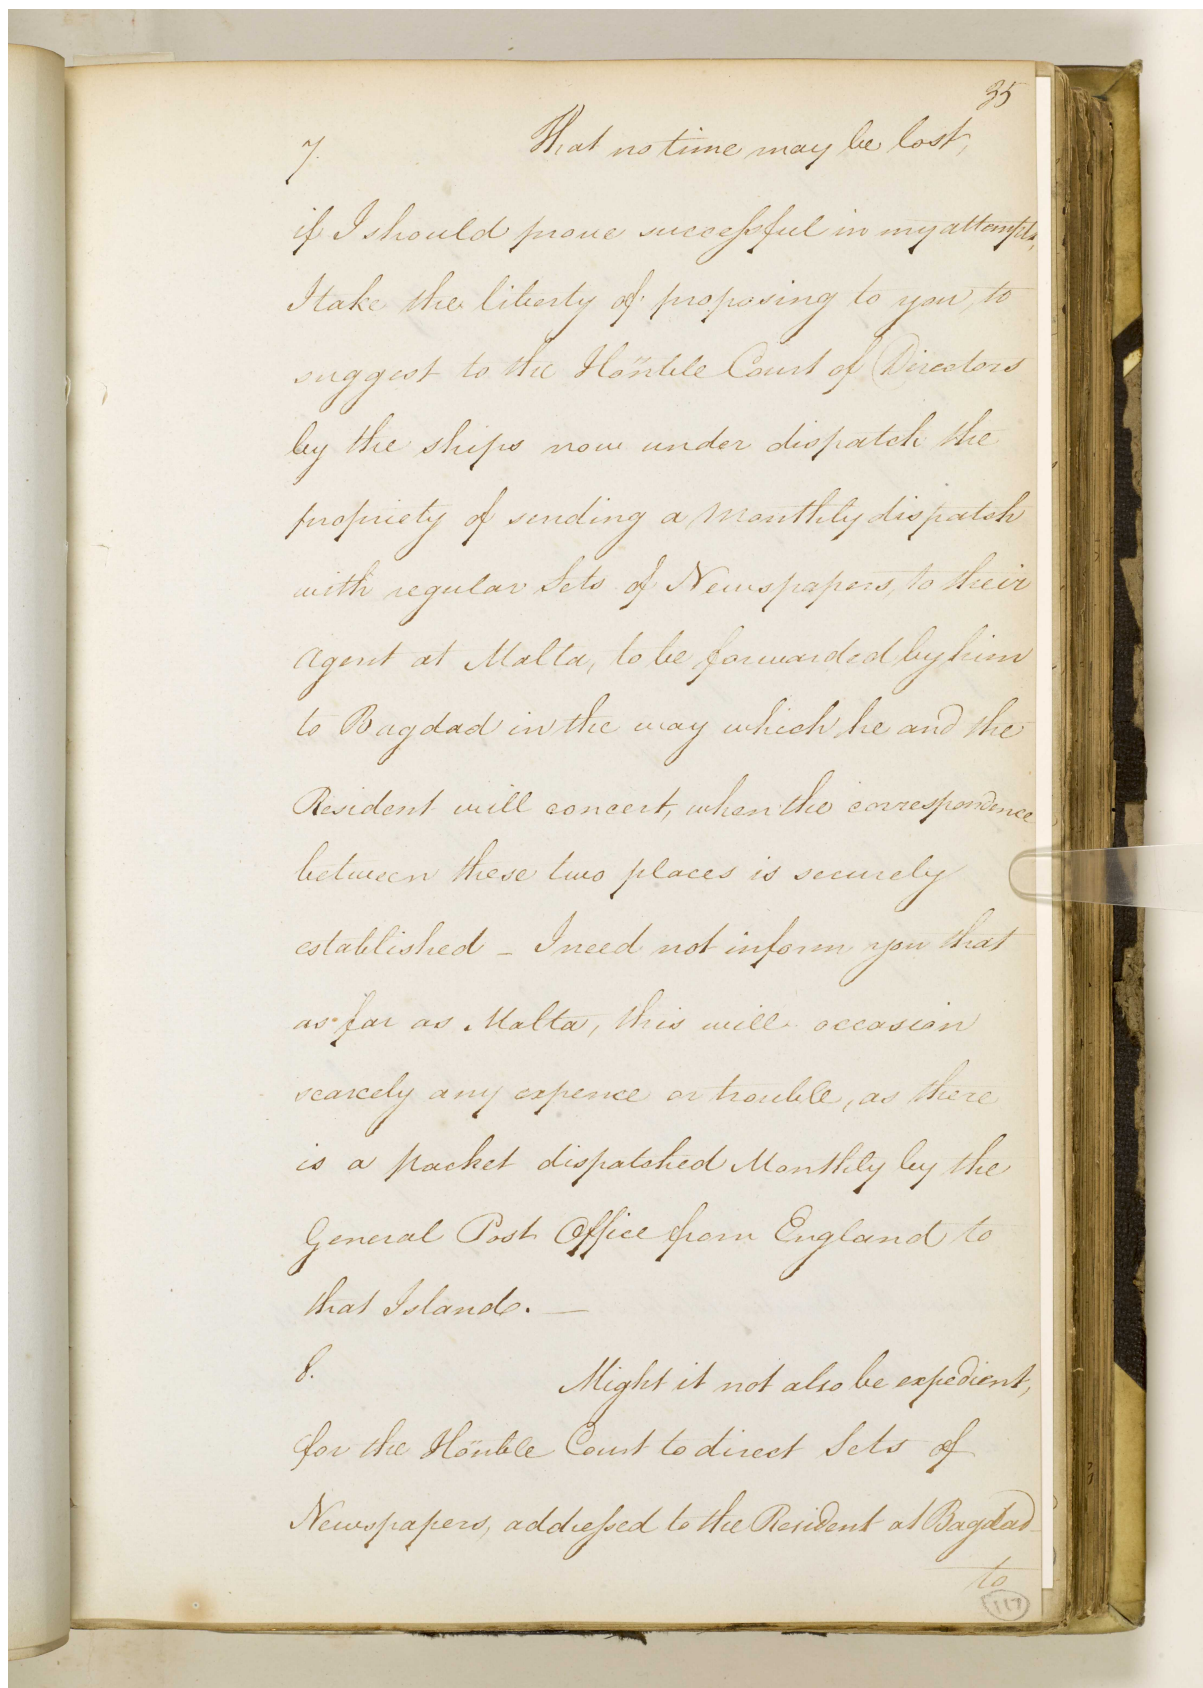 35
7. That no time may be lost,
if I should prove successful in my attempts,
I take the liberty of proposing to you, to
suggest to the Honble Court of Directors
by the ships now under dispatch the
propriety of sending a Monthly dispatch
with regular Sets of Newspapers, to their
Agent at Malta, to be forwarded by him
to Bagdad in the way which he and the
Resident will concert, when the correspondence
between these two places is securely
established – I need not inform you that
as far as Malta, this will occasion
scarcely any expence or trouble, as there
is a packet dispatched Monthly by the
General Post Office from England to
that Island. —
8. Might it not also be expedient,
for the Honble Court to direct Sets of
Newspapers, addressed to the Resident at Bagdad
to
117